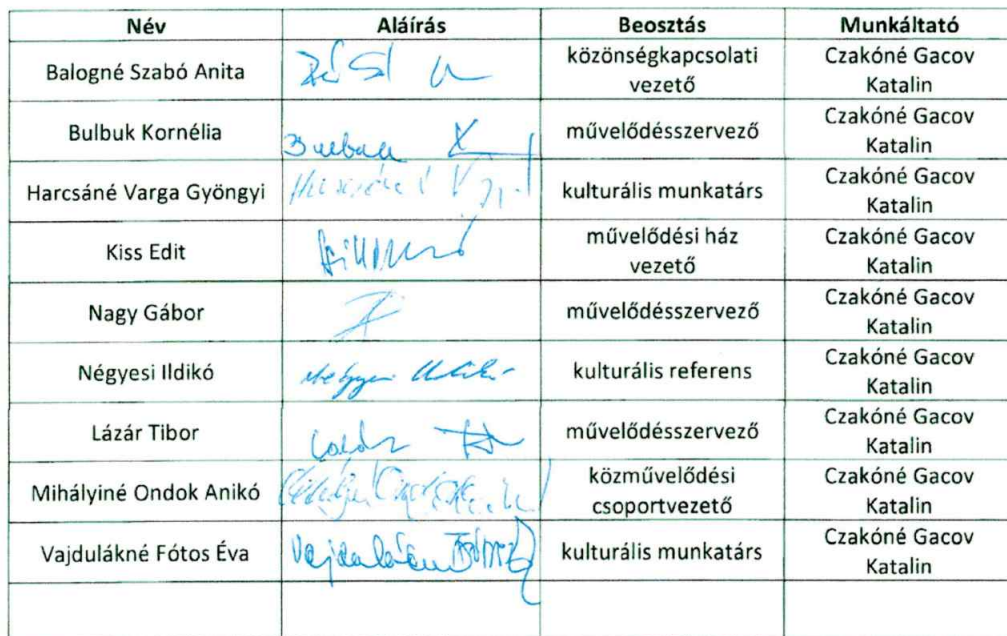 Név Aláírás Beosztás Munkáltató
Balogné Szabó Anita közönségkapcsolati vezető Czakóné Gacov Katalin
Bulbuk Kornélia művelődésszervező Czakóné Gacov Katalin
Harcsáné Varga Gyöngyi kulturális munkatárs Czakóné Gacov Katalin
Kiss Edit művelődési ház vezető Czakóné Gacov Katalin
Nagy Gábor művelődésszervező Czakóné Gacov Katalin
Négyesi Ildikó kulturális referens Czakóné Gacov Katalin
Lázár Tibor művelődésszervező Czakóné Gacov Katalin
Mihályiné Ondok Anikó közművelődési csoportvezető Czakóné Gacov Katalin
Vajdulákné Fótos Éva kulturális munkatárs Czakóné Gacov Katalin